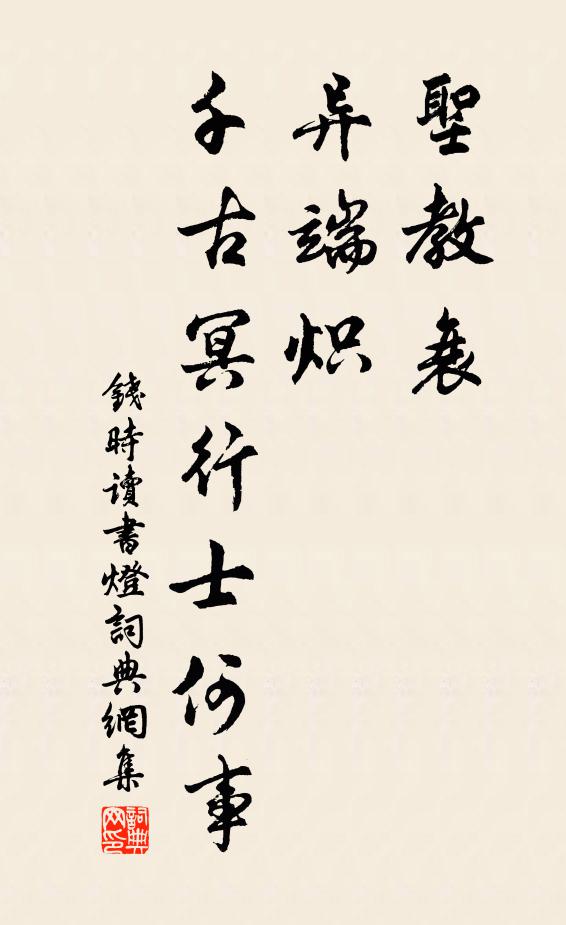 聖教衰
异端炽
千古冥行士何事
錢時讀書燈詞典網集
詞典
网印